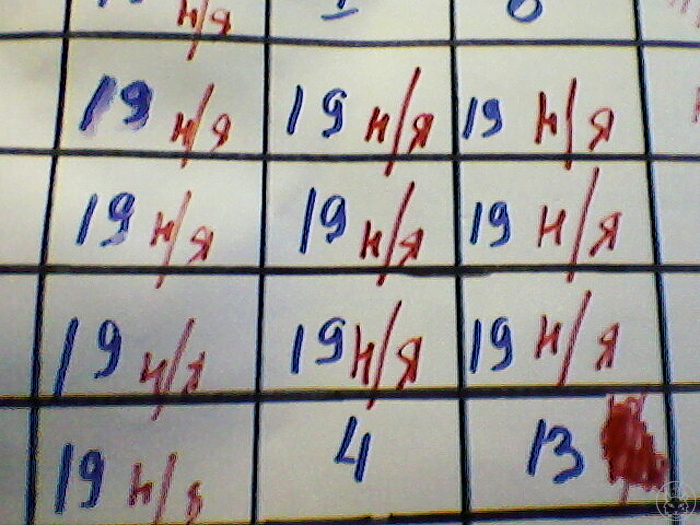 н/я
19 н/я 19 н/я 19 н/я
19 н/я 19 н/я 19 н/я
19 н/я 19 н/я 19 н/я
19 н/я 4 13